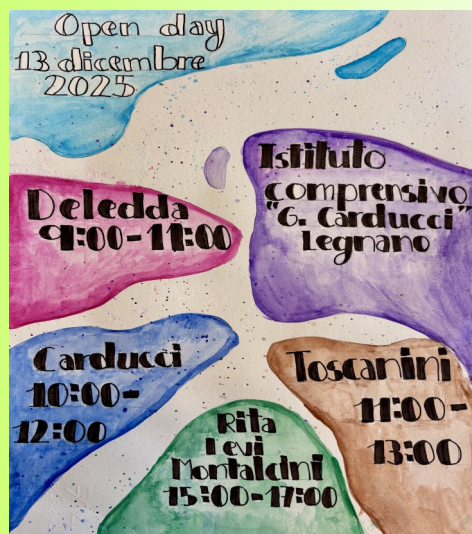 Open day
13 dicembre
2025
Istituto
comprensivo
"G. Carducci"
Legnano
Deledda
9:00-11:00
Carducci
10:00-
12:00
Toscanini
11:00-
13:00
Rita
Levi
Montalcini
15:00-17:00